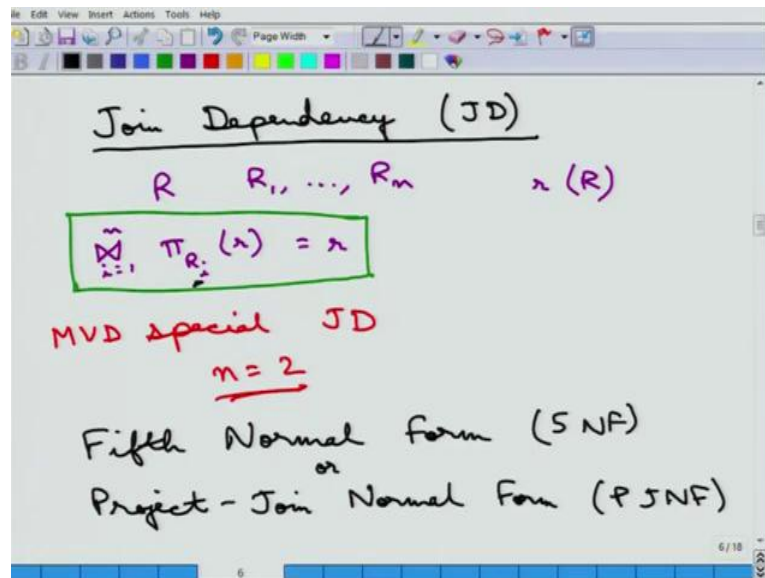 le Edit View Insert Actions Tools Help
Page Width
B I
Join Dependency (JD)
R R₁, ..., Rₙ r (R)
⋈ⁿᵢ₌₁ π_Rᵢ (r) = r
MVD special JD
n = 2
Fifth Normal Form (5 NF)
or
Project - Join Normal Form (PJNF)
6/18
6